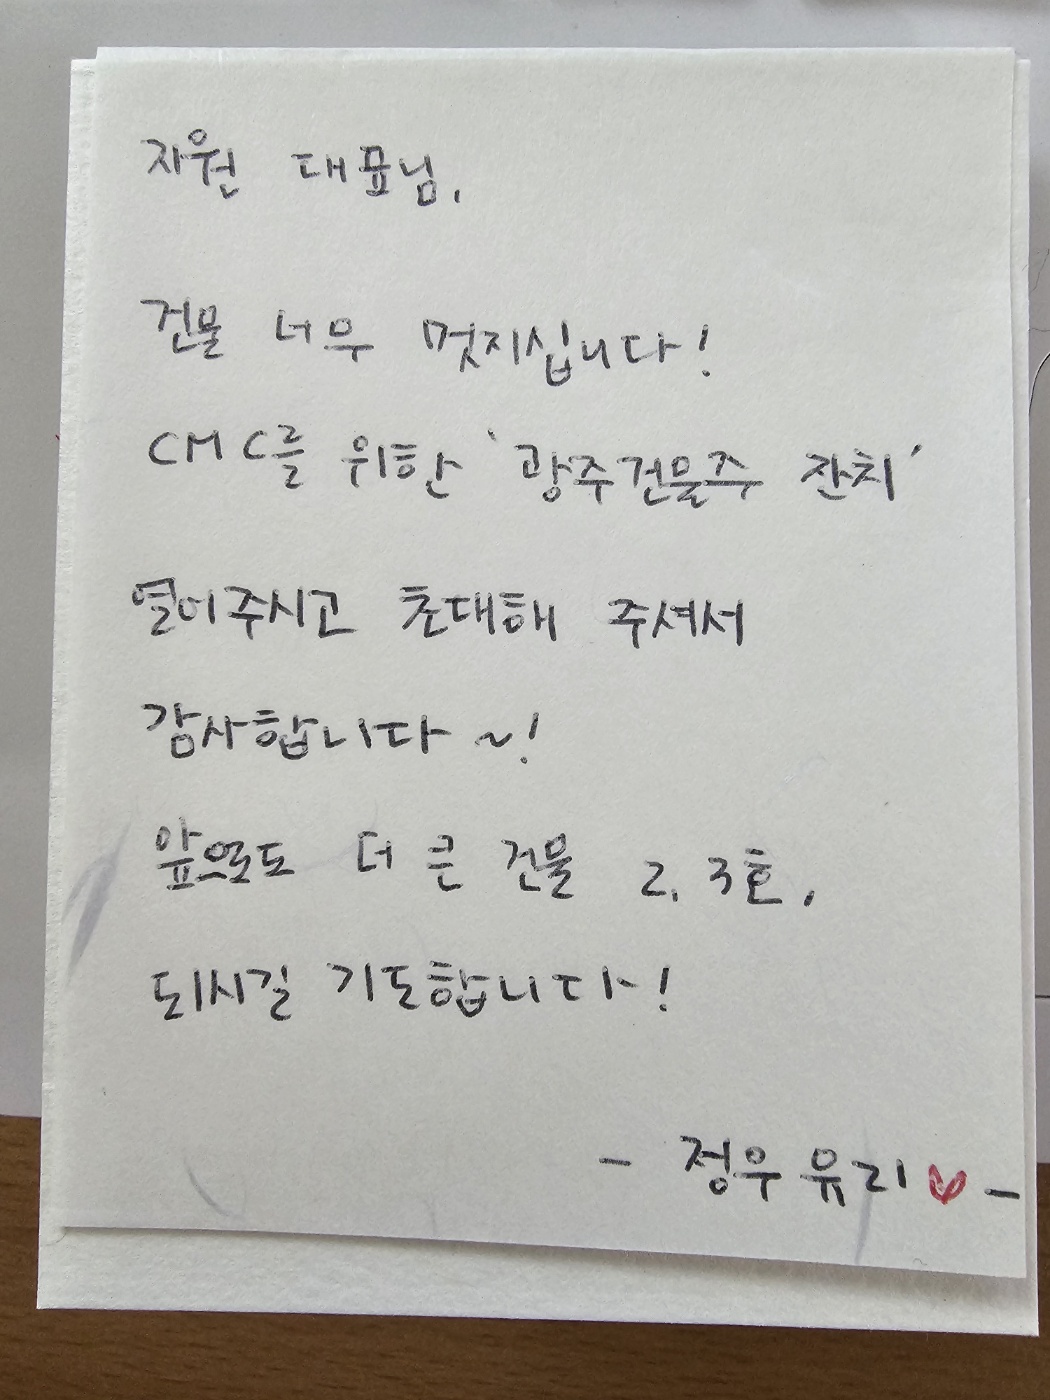 지원 대표님,
건물 너무 멋지십니다!
CMC를 위한 '광주건물주 잔치'
열어주시고 초대해 주셔서
감사합니다~!
앞으로도 더 큰 건물 2, 3호,
되시길 기도합니다!
- 정우유리♥-